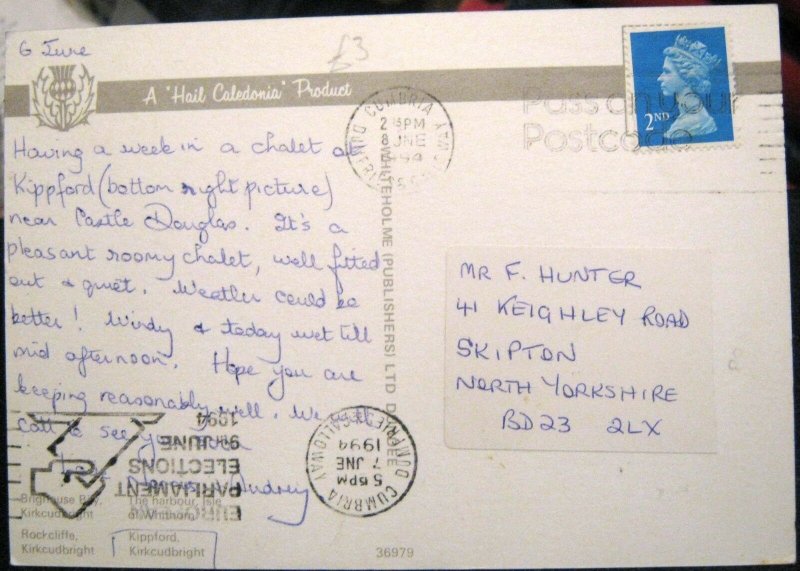 6 June
£3
A "Hail Caledonia" Product
Having a week in a chalet at
Kippford (bottom right picture)
near Castle Douglas. It's a
pleasant roomy chalet, well fitted
out & quiet. Weather could be
better! Windy & today wet till
mid afternoon. Hope you are
keeping reasonably well. We will
call & see you
Audrey
Brighouse Bay,
Kirkcudbright
The harbour, Isle
of Whithorn
Rockcliffe,
Kirkcudbright
Kippford,
Kirkcudbright
EUROPEAN
PARLIAMENT
ELECTIONS
9th JUNE
1994
CUMBRIA
DUMFRIES & GALLOWAY
5 PM
7 JNE
1994
WHITEHOLME (PUBLISHERS) LTD DUNDEE
36979
CUMBRIA
PM
8 JNE
1994
Pass on your
Postcode
2ND
MR F. HUNTER
41 KEIGHLEY ROAD
SKIPTON
NORTH YORKSHIRE
BD23 2LX